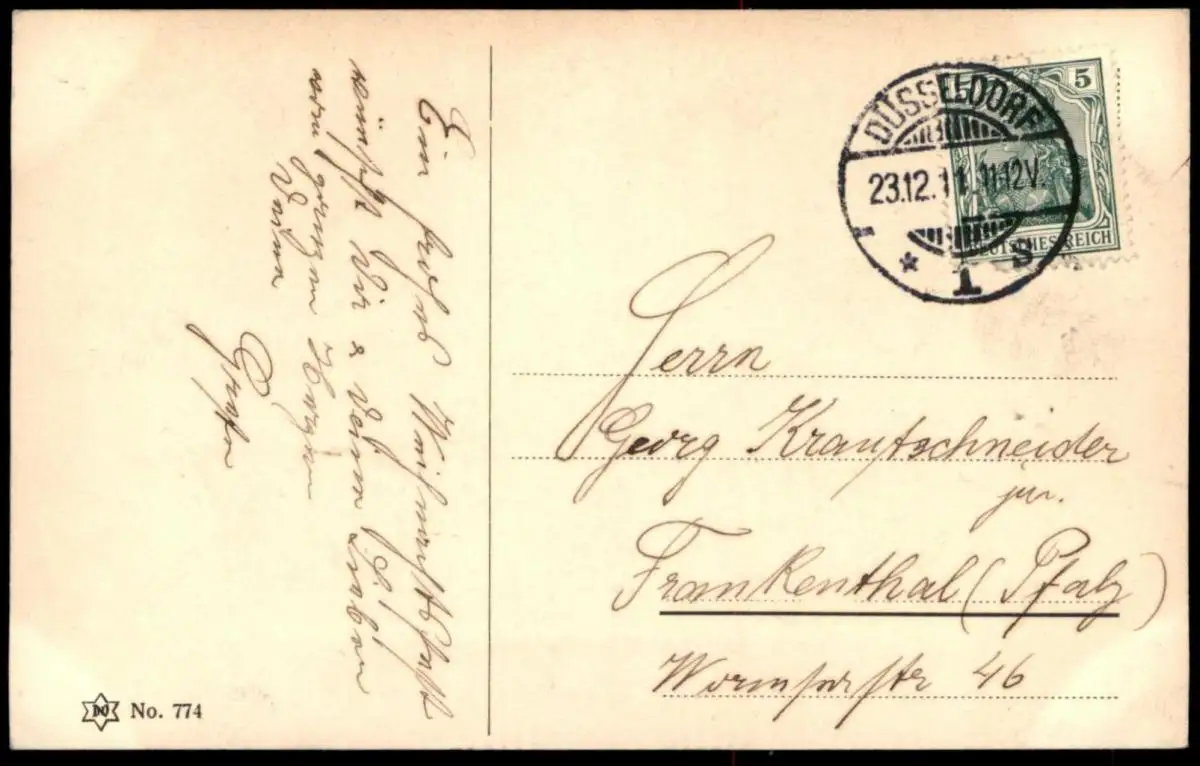 Ein frohes Weihnachtsfest
wünscht Dir & Deinen Lieben
von ganzem Herzen
Deine
Grete
DÜSSELDORF
23.12.11. 11-12V.
* 1 S
5
DEUTSCHES REICH
Herrn
Georg Krautschneider
jun.
Frankenthal (Pfalz)
Wormserstr 46
DO No. 774